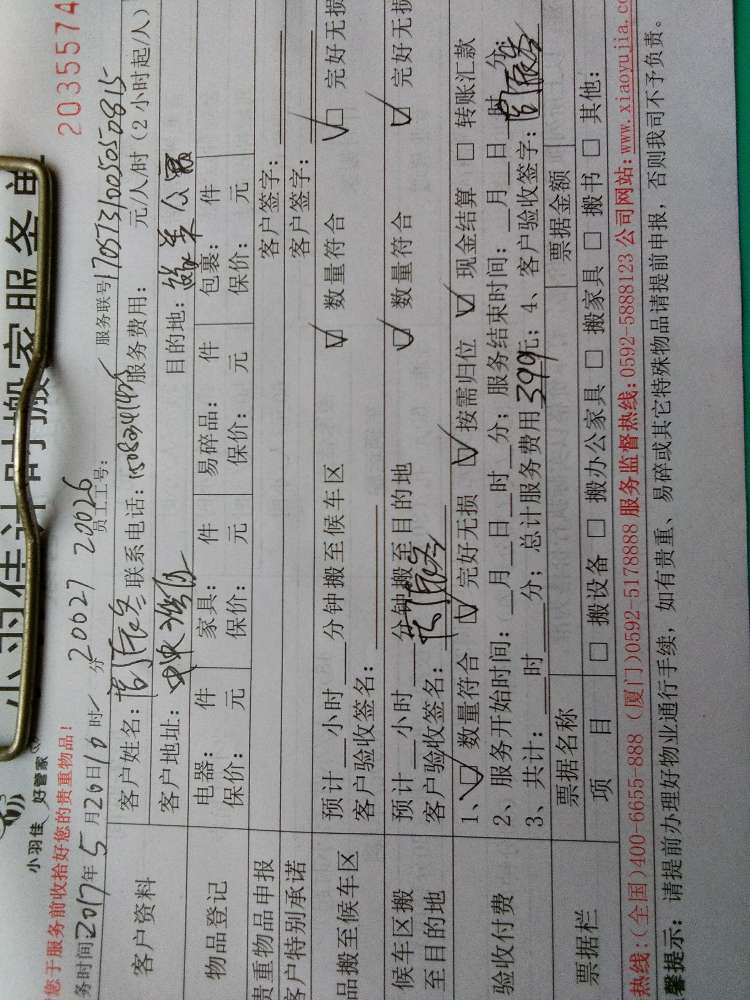 小羽佳计时搬家服务单
2035574
小羽佳 好管家
您于服务前收拾好您的贵重物品!
务时间2017年5月26日10时 分 20027 20026 员工工号: 服务联号170573100505050815
客户资料
客户姓名: 联系电话: 服务费用: 元/人/时(2小时起/人)
客户地址: 中央湾 目的地:
物品登记
电器: 件 家具: 件 易碎品: 件 包裹: 件
保价: 元 保价: 元 保价: 元 保价: 元
贵重物品申报 客户签字:
客户特别承诺 客户签字:
品搬至候车区
预计 小时 分钟搬至候车区 数量符合 完好无损
客户验收签名:
候车区搬至目的地
预计 小时 分钟搬至目的地 数量符合 完好无损
客户验收签名:
验收付费
1、数量符合 完好无损 按需归位 现金结算 转账汇款
2、服务开始时间: 月 日 时 分;服务结束时间: 月 日 时 分;
3、共计: 时 分;总计服务费用399元;4、客户验收签字:
票据栏
票据名称 票据金额
项 目 搬设备 搬办公家具 搬家具 搬书 其他:
热线:(全国)400-6655-888 (厦门)0592-5178888 服务监督热线:0592-5888123 公司网站:www.xiaoyujia.c
馨提示: 请提前办理好物业通行手续,如有贵重、易碎或其它特殊物品请提前申报,否则我司不予负责。